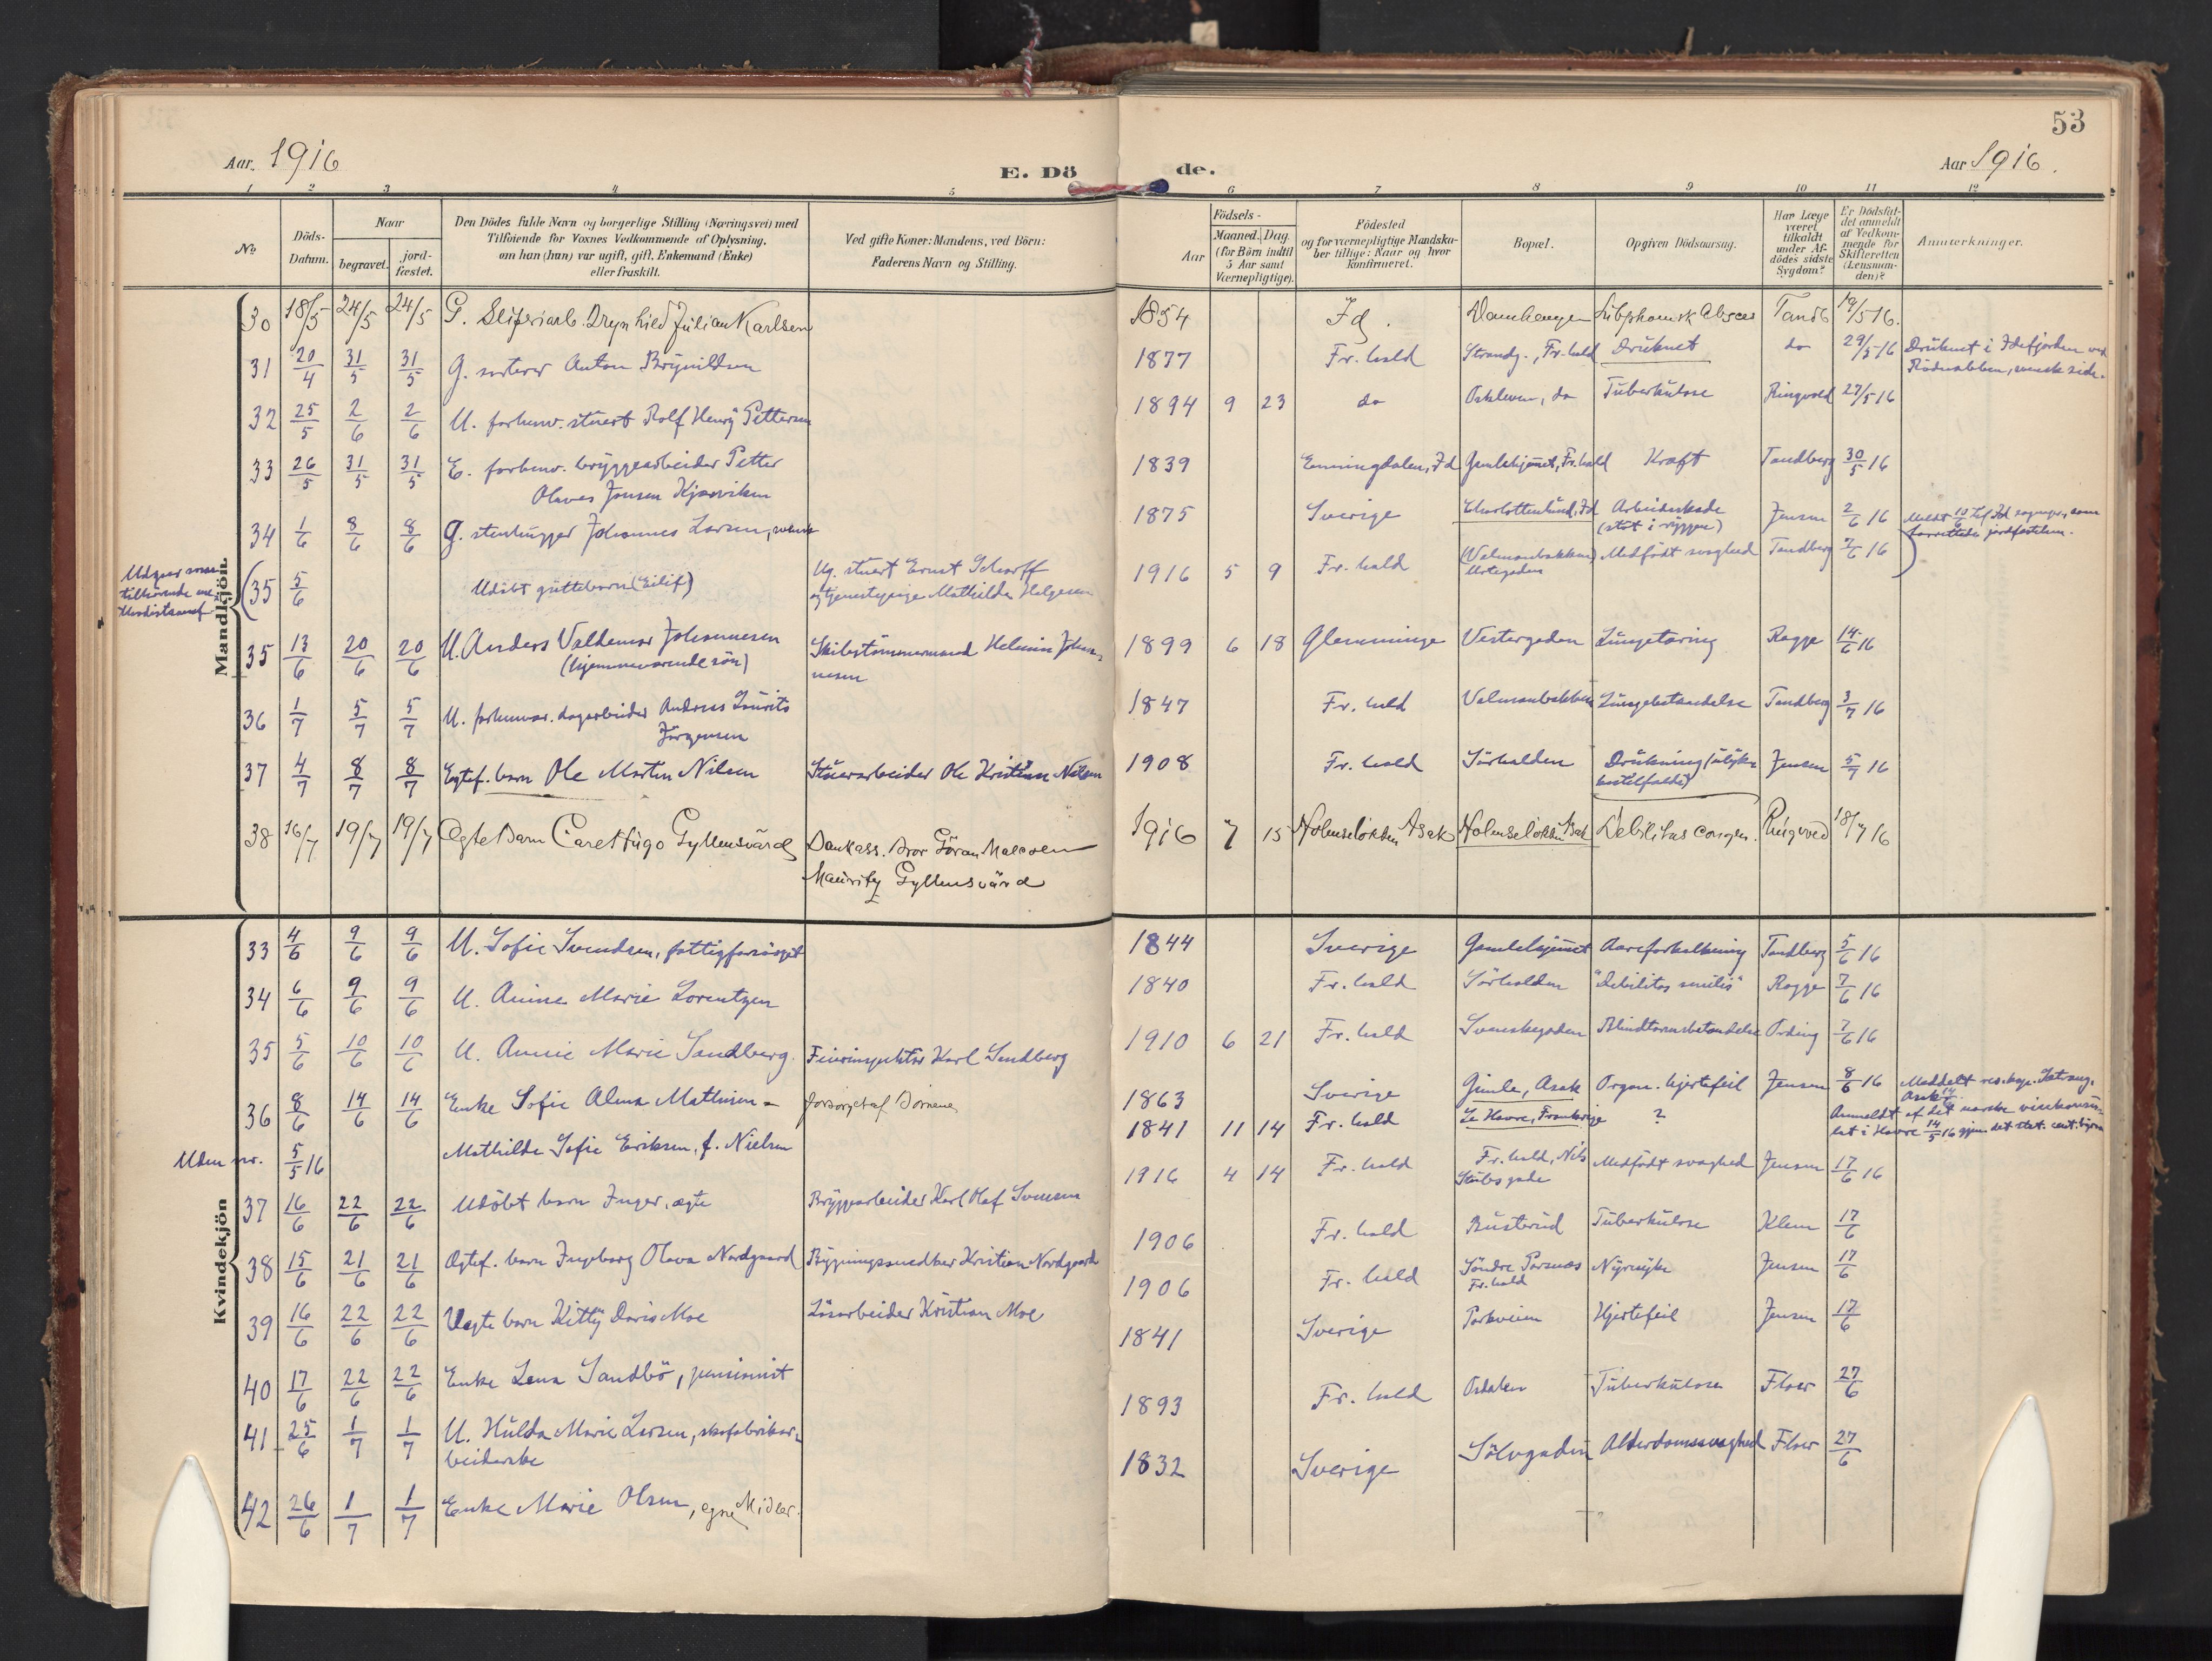 53
Aar. 1916
E. Dö
de.
Aar 1916.
1 2 3 4 5 6 7 8 9 10 11 12
No
Döds-
Datum.
Naar
begravet.
jord-
fæstet.
Den Dödes fulde Navn og borgerlige Stilling (Næringsvei) med
Tilföiende for Voxnes Vedkommende af Oplysning,
om han (hun) var ugift, gift, Enkemand (Enke)
eller fraskilt.
Ved gifte Koner: Mandens, ved Börn:
Faderens Navn og Stilling.
Aar
Födsels-
Maaned. Dag.
(for Börn indtil
5 Aar samt
Værnepligtige).
Födested
og for værnepligtige Mandska-
ber tillige: Naar og hvor
konfirmeret.
Bopæl.
Opgiven Dödsaarsag.
Har Læge
været
tilkaldt
under Af-
dödes sidste
Sygdom?
Er Dödsfal-
det anmeldt
af Vedkom-
mende for
Skifteretten
(Lensman-
den)?
Anmærkninger.
Mandkjön
30 18/5 24/5 24/5 G. Julian Karlsen 1854 Id. 19/5 16.
31 20/4 31/5 31/5 G. sorterer Anton Brynildsen 1877 Fr.hald Strandg., Fr.hald Druknet do 29/5 16 Druknet i Idefjorden ved
svensk side.
32 25/5 2/6 2/6 U. forhenv. stuert Rolf Henry Pettersen 1894 9 23 do Oskleven, do Tuberkulose Ringvold 27/5 16
33 26/5 31/5 31/5 E. forhenv. bryggearbeider Petter
Olaves Jensen Kjærviken 1839 Enningdalen, Id Gamlehjemmet, Fr.hald Kraft Tandberg 30/5 16
34 1/6 8/6 8/6 G. stenhugger Johannes Larsen, svensk 1875 Sverige Charlottenlund, Id Arbeiderskade
(støt i ryggen) Jensen 2/6 16
35 5/6 Udöbt guttebarn (Eilif) Ug. stuert Ernst Scharff
og tjenestepige Mathilde Helgesen 1916 5 9 Fr.hald (Valmanbakken)
Urtegaden Medfödt svaghed Tandberg 7/6 16
35 13/6 20/6 20/6 U. Anders Valdemar Johannesen
(hjemmeværende sön) Skibstömmermand Helmin Johan-
nesen 1899 6 18 Glemminge Vestergaden Lungetæring Rogge 14/6 16
36 1/7 5/7 5/7 U. forhenvær. dagarbeider Andreas Laurits
Jörgensen 1847 Fr.hald Valmanbakken Lungebetændelse Tandberg 3/7 16
37 4/7 8/7 8/7 Egtef. barn Ole Martin Nilsen Stuerarbeider Ole Kristian Nilsen 1908 Fr.hald Sörhalden Drukning (ulykke-
Jensen 5/7 16
38 16/7 19/7 19/7 Ægte Barn Carl Hugo Gyllensvärd Bankass. Bror Göran Malcolm
Mauritz Gyllensvärd 1916 7 15 Holenselökken, Asak Holenselökken, Asak Debilitas congen. Ringvold 18/7 16
Kvindekjön
33 4/6 9/6 9/6 U. Sofie Svendsen, fattigforsörget 1844 Sverige Gamlehjemmet Aareforkalkning Tandberg 5/6 16
34 6/6 9/6 9/6 U. Anine Marie Lorentzen 1840 Fr.hald Sörhalden "Debilitas senilis" Rogge 7/6 16
35 5/6 10/6 10/6 U. Annie Marie Sandberg. Feierinspektör Karl Sandberg 1910 6 21 Fr.hald Svenskegaden Blindtarmsbetændelse Ording 7/6 16
36 8/6 14/6 14/6 Enke Sofie Alma Mathisen - forsörget af Börnene 1863 Sverige Gimle, Asak Organ. hjertefeil Jensen 8/6 16
Uden nr. 5/5 16 Mathilde Sofie Eriksen, f. Nielsen 1841 11 14 Fr.hald Le Havre, Frankrige ? Anmeldt af det norske visekonsu-
lat i Havre 14/5 16 gjen. det stat. cent. byraa
37 16/6 22/6 22/6 Udöbt barn Inger, ægte Bryggearbeider Karl Olaf Svensen 1916 4 14 Fr.hald Fr.hald, Nils
Stubs gade Medfödt svaghed Jensen 17/6 16
38 15/6 21/6 21/6 Ægtef. barn Ingeborg Olava Nordgaard Bygningssnedker Kristian Nordgaard 1906 Fr.hald Busterud Tuberkulose Klem 17/6
39 16/6 22/6 22/6 Uegte barn Kitty Doris Moe Lösarbeider Kristian Moe 1906 Fr.hald Söndre
Fr.hald Nyresyke Jensen 17/6
40 17/6 22/6 22/6 Enke Lena Sandbö, pensionist 1841 Sverige Parkveien Hjertefeil Jensen 17/6
41 25/6 1/7 1/7 U. Hulda Marie Larsen, skofabrikar-
beiderske 1893 Fr.hald Osdalen Tuberkulose Floer 27/6
42 26/6 1/7 1/7 Enke Marie Olsen, egne Midler. 1832 Sverige Sölvgaden Alderdomssvaghed Floer 27/6